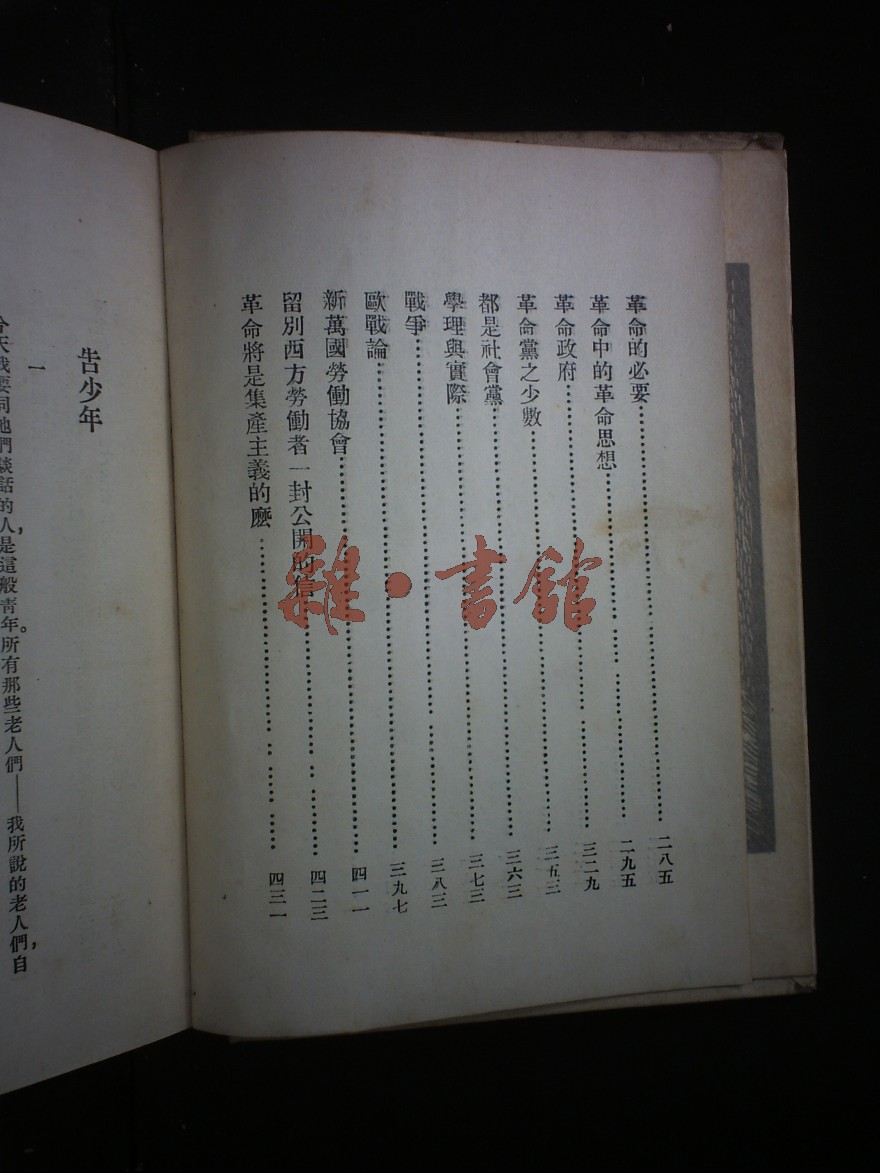 革命的必要……二八五
革命中的革命思想……二九五
革命政府……三二九
革命黨之少數……三五三
都是社會黨……三六三
學理與實際……三七三
戰爭……三八三
歐戰論……三九七
新萬國勞働協會……四一一
留別西方勞働者一封公開的信……四二三
革命將是集產主義的麽……四三一
告少年
一
今天我要同他們談話的人，是這般青年。所有那些老人們——我所說的老人們，自
雜·書館